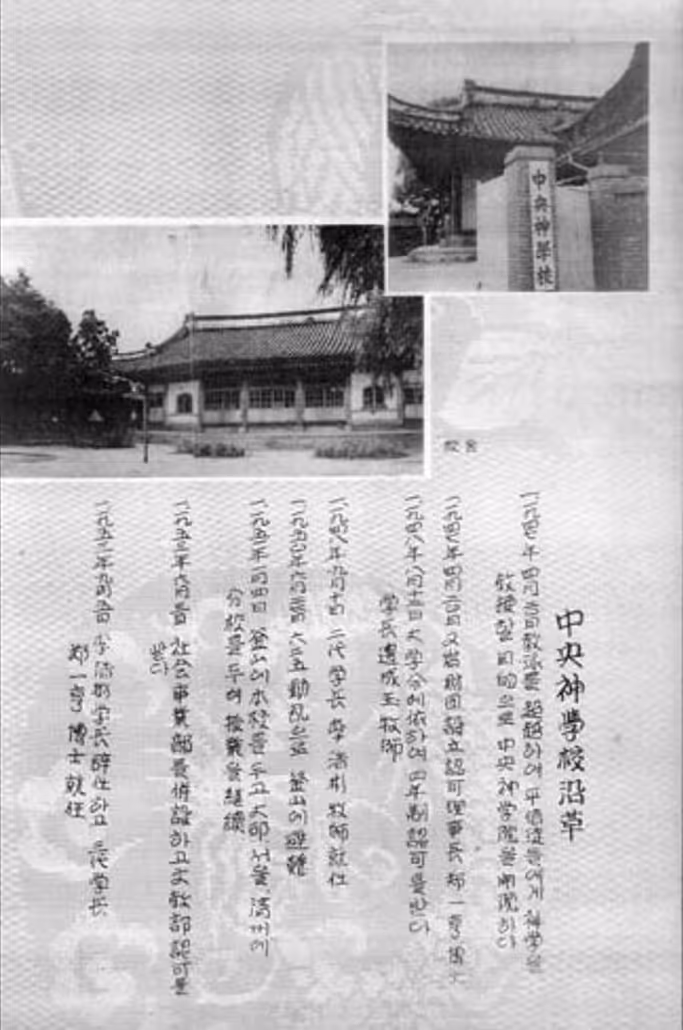 中央神學校
校舍
中央神學校沿革
一九四七年 四月 教派를 超越하여 平信徒들에게 神学을
敎授할 目的으로 中央神学院을 開院하다
一九四七年 四月 又岩財団設立認可理事長 鄭一亨 博士
一九四八年 八月 大学令에 依하여 四年制 認可를 받다
学長 邊成玉 牧師
一九四八年 九月 二代 学長 李浩彬 牧師 就任
一九五〇年 六月 六二五動乱으로 釜山에 避難
一九五一年 一月四日 釜山에 本校를 두고 大邱, 서울, 清州에
分校를 두어 授業을 継續
一九五三年 社会事業部를 併設하고 文教部 認可를
받다
李浩彬 学長 辞任하고 三代 学長
鄭一亨 博士 就任